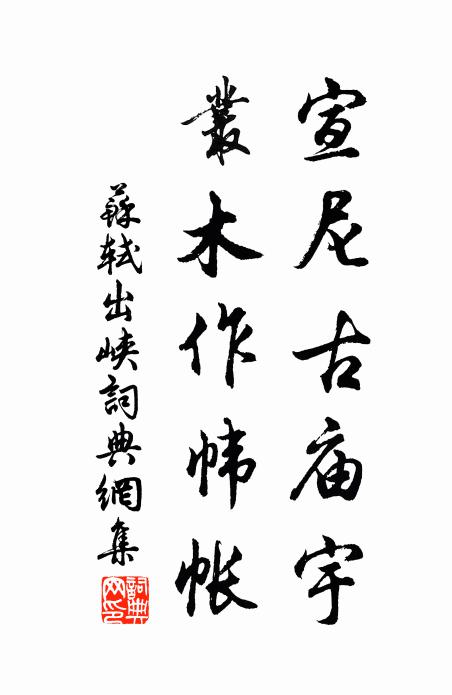 宣尼古庙宇
叢木作帏帐
蘇軾出峡詞典網集
詞典网印